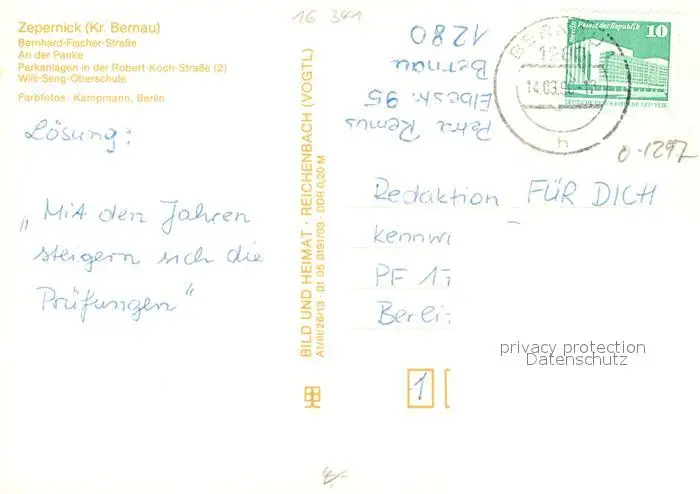 16 341
Zepernick (Kr. Bernau)
Bernhard-Fischer-Straße
An der Panke
Parkanlagen in der Robert-Koch-Straße (2)
Willi-Seng-Oberschule
Farbfotos · Kampmann, Berlin
Lösung:
„Mit den Jahren
steigern sich die
Prüfungen"
BILD UND HEIMAT · REICHENBACH (VOGTL)
A1/III/26/13 · 01 05 0191/03 · DDR 0,20 M
Petra Remus
Elbestr. 95
Bernau
1280
Berlin, Palast der Republik 10
DEUTSCHE DEMOKRATISCHE REPUBLIK
BERNAU
14.03.
h
0-1297
Redaktion FÜR DICH
kennw
PF 17
Berli
privacy protection
Oldthing
1